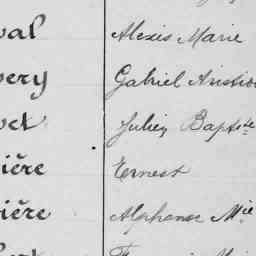 val Alexis Marie
very Gabriel Aristide
vet Julien Bapte
ière Ernest
ière Alphonse Mie